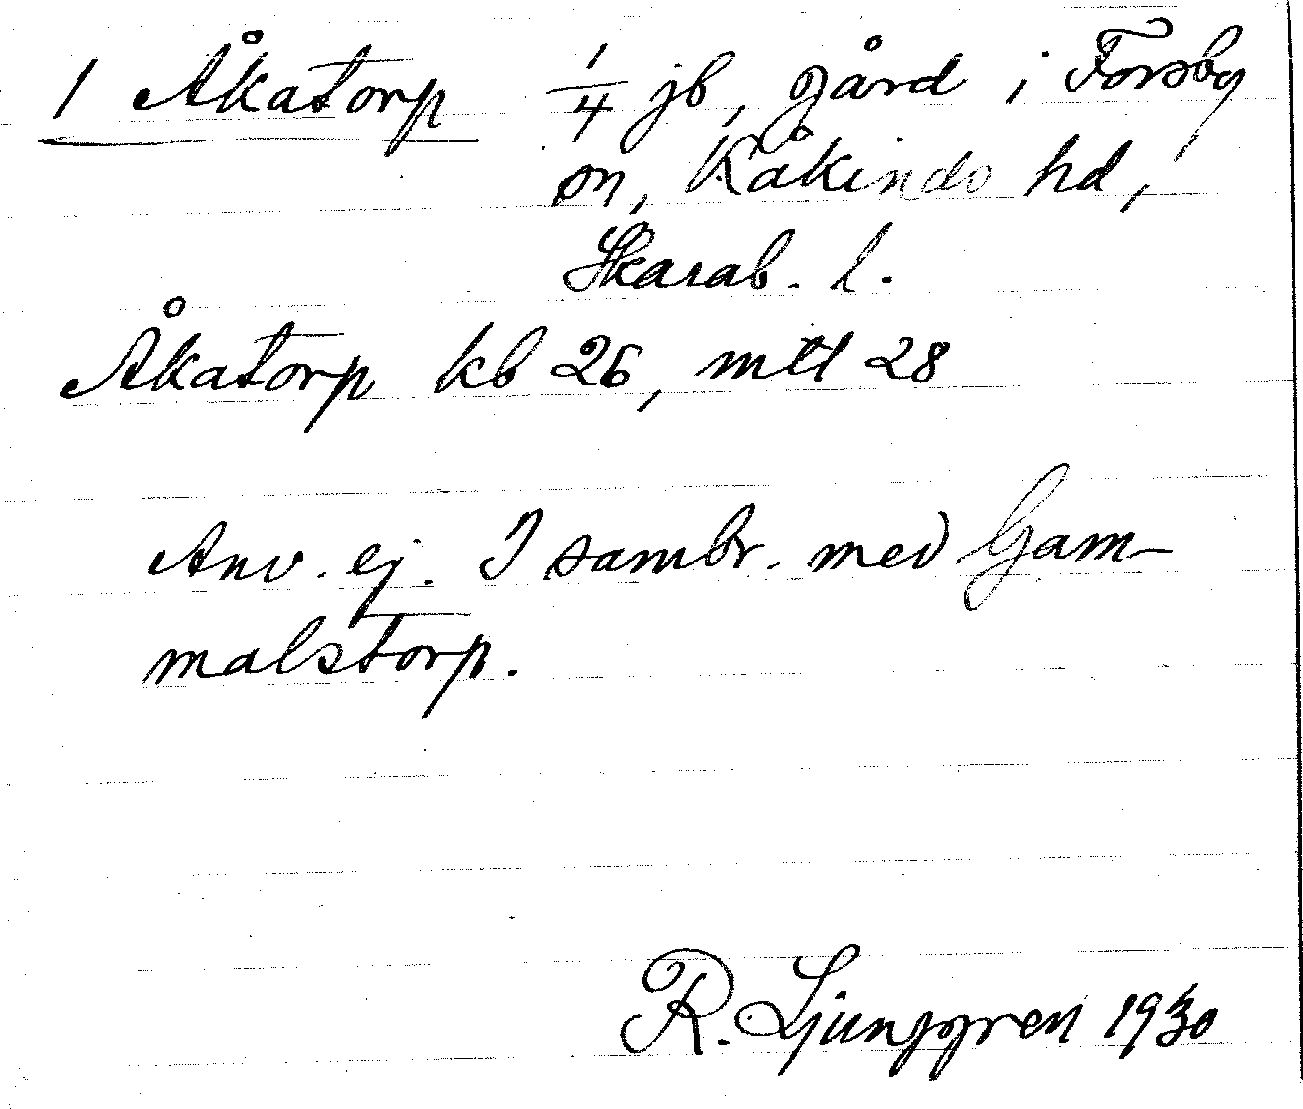 1 Åkatorp 1/4 jb, gård i Forsby
sn, Kåkinds hd,
Skarab. l.
Åkatorp kb 26, mtl 28
Anv. ej. I sambr. med Gam-
malstorp.
R. Ljunggren 1930